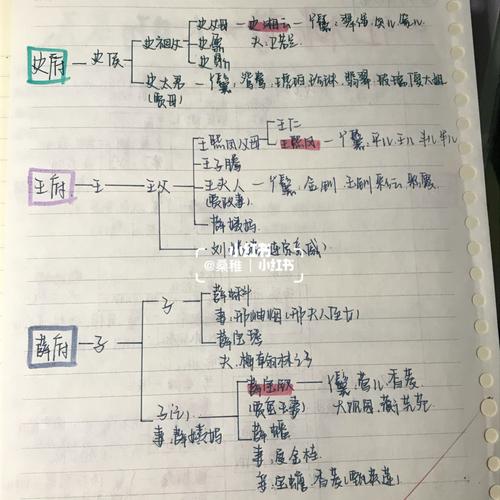 史府 — 史侯
史祖父
史父母 — 史湘云 — 丫鬟: 翠缕
夫: 卫若兰
史鼐
史鼎
史太君 — 丫鬟: 鸳鸯 琥珀 珍珠 翡翠 玻璃
(贾母)
王府 — 王 — 王父
王熙凤父母
王仁
王熙凤 — 丫鬟: 平儿
王子腾
王夫人 — 丫鬟: 金钏 玉钏 彩云 彩霞
(贾政妻)
薛姨妈
刘姥姥
小红书
@桑稚 | 小红书
薛府 — 子
子
薛蝌
妻: 邢岫烟(邢夫人侄女)
薛宝琴
夫: 梅翰林之子
子(亡)
妻: 薛姨妈
薛宝钗 — 丫鬟: 莺儿 香菱
(贾宝玉妻)
大观园: 蘅芜苑
薛蟠
妻: 夏金桂
妾: 宝蟾 香菱(甄英莲)